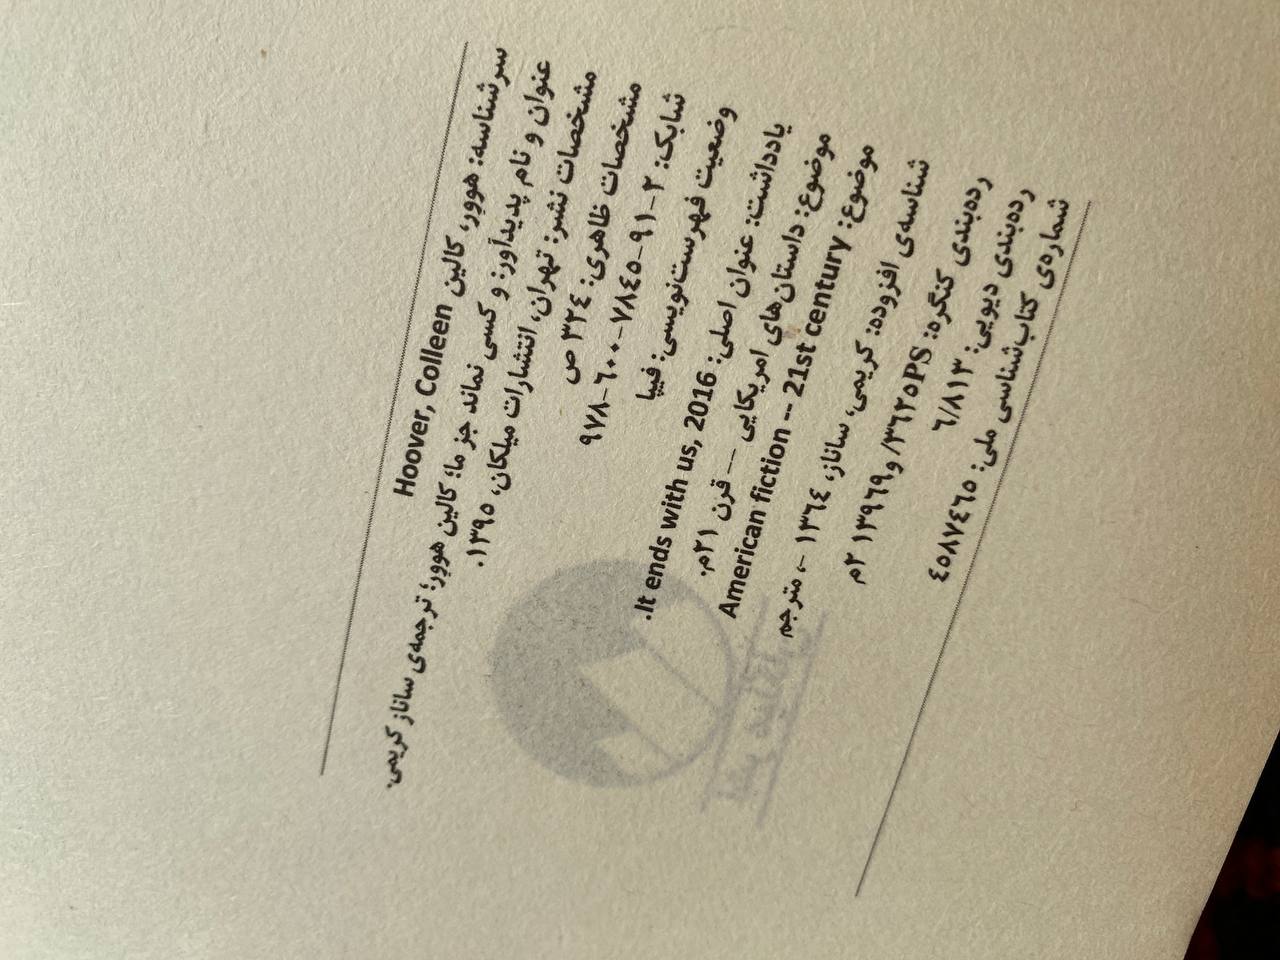 سرشناسه: هوور، کالین Hoover, Colleen
عنوان و نام پدیدآور: و کسی نماند جز ما؛ کالین هوور؛ ترجمه‌ی ساناز کریمی.
مشخصات نشر: تهران، انتشارات میلکان، ۱۳۹۵.
مشخصات ظاهری: ۳۲٤ ص
شابک: ۲-۹۱-۷۸٤٥-٦۰۰-۹۷۸
وضعیت فهرست‌نویسی: فیپا
یادداشت: عنوان اصلی: It ends with us, 2016.
موضوع: داستان‌های امریکایی --- قرن ۲۱م.
موضوع: American fiction -- 21st century
شناسه‌ی افزوده: کریمی، ساناز، ۱۳٦٤ -، مترجم
رده‌بندی کنگره: ۳٦۲٥PS/ و۱۳۹٦۹ ۲م
رده‌بندی دیویی: ٦/۸۱۳
شماره‌ی کتاب‌شناسی ملی: ٤٥۸۷٤٦٥